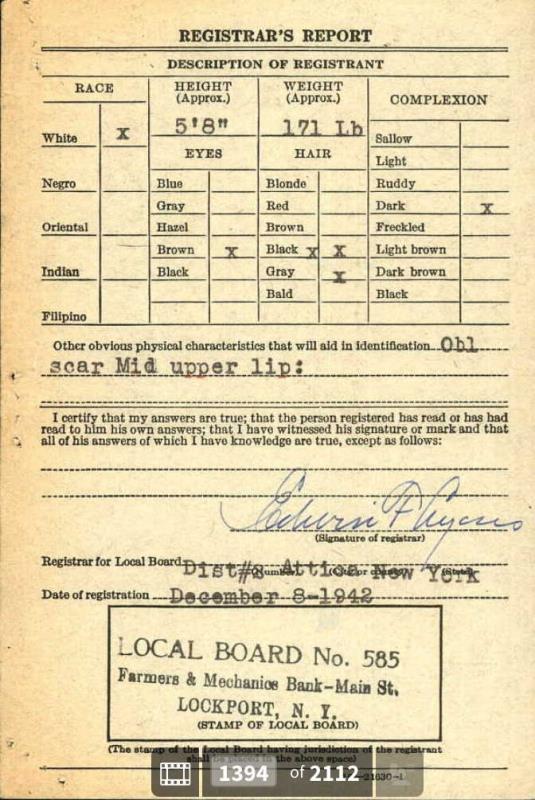 REGISTRAR'S REPORT
DESCRIPTION OF REGISTRANT
RACE
HEIGHT (Approx.)
WEIGHT (Approx.)
COMPLEXION
White X
5'8"
171 Lb
Sallow
EYES
HAIR
Light
Negro
Blue
Blonde
Ruddy
Gray
Red
Dark X
Oriental
Hazel
Brown
Freckled
Brown X
Black X X
Light brown
Indian
Black
Gray X
Dark brown
Bald
Black
Filipino
Other obvious physical characteristics that will aid in identification Obl
scar Mid upper lip:
I certify that my answers are true; that the person registered has read or has had
read to him his own answers; that I have witnessed his signature or mark and that
all of his answers of which I have knowledge are true, except as follows:
Edwin F
(Signature of registrar)
Registrar for Local Board Dist#8 Attica New York
Date of registration December 8-1942
LOCAL BOARD No. 585
Farmers & Mechanics Bank-Main St.
LOCKPORT, N. Y.
(STAMP OF LOCAL BOARD)
(The stamp of the Local Board having jurisdiction of the registrant
shall be placed in the above space)
1394 of 2112
21630-1